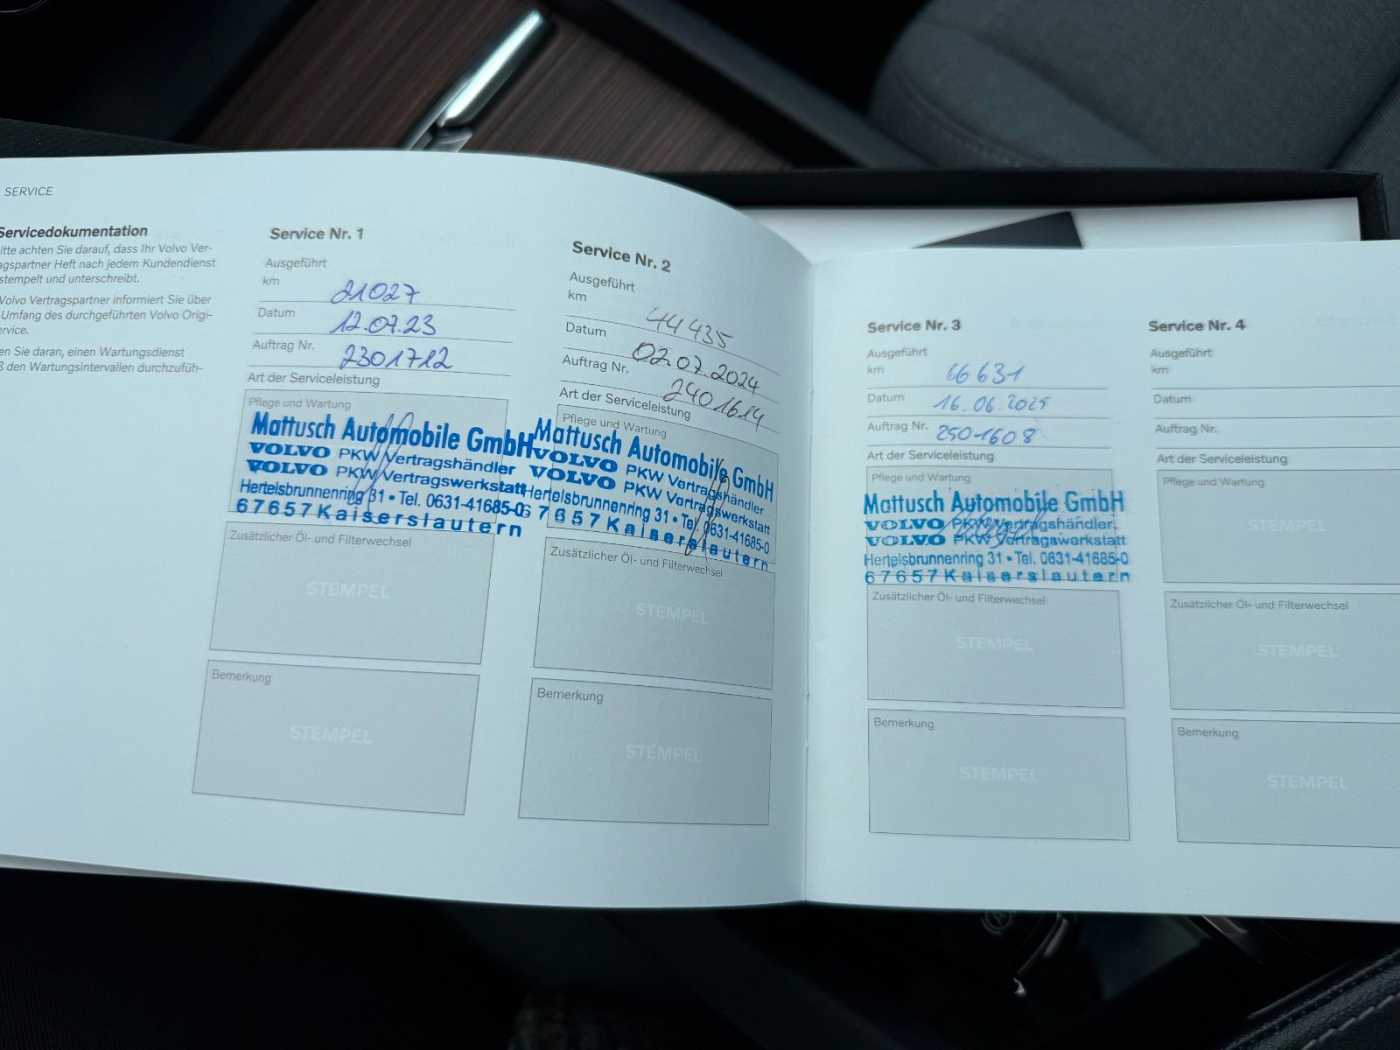 SERVICE
Servicedokumentation
itte achten Sie darauf, dass Ihr Volvo Ver-
agspartner Heft nach jedem Kundendienst
stempelt und unterschreibt.
Volvo Vertragspartner informiert Sie über
Umfang des durchgeführten Volvo Origi-
ervice.
en Sie daran, einen Wartungsdienst
ß den Wartungsintervallen durchzufüh-
Service Nr. 1
Ausgeführt
km 21027
Datum 12.07.23
Auftrag Nr. 2301712
Art der Serviceleistung
Pflege und Wartung
Mattusch Automobile GmbH
VOLVO PKW Vertragshändler
VOLVO PKW Vertragswerkstatt
Hertelsbrunnenring 31 • Tel. 0631-41685-0
67657 Kaiserslautern
Zusätzlicher Öl- und Filterwechsel
STEMPEL
Bemerkung
STEMPEL
Service Nr. 2
Ausgeführt
km 44435
Datum 02.07.2024
Auftrag Nr. 2401614
Art der Serviceleistung
Pflege und Wartung
Mattusch Automobile GmbH
VOLVO PKW Vertragshändler
VOLVO PKW Vertragswerkstatt
Hertelsbrunnenring 31 • Tel. 0631-41685-0
67657 Kaiserslautern
Zusätzlicher Öl- und Filterwechsel
STEMPEL
Bemerkung
STEMPEL
Service Nr. 3
Ausgeführt
km 66631
Datum 16.06.2025
Auftrag Nr. 250-1608
Art der Serviceleistung
Pflege und Wartung
Mattusch Automobile GmbH
VOLVO PKW Vertragshändler
VOLVO PKW Vertragswerkstatt
Hertelsbrunnenring 31 • Tel. 0631-41685-0
67657 Kaiserslautern
Zusätzlicher Öl- und Filterwechsel
STEMPEL
Bemerkung
STEMPEL
Service Nr. 4
Ausgeführt
km
Datum
Auftrag Nr.
Art der Serviceleistung
Pflege und Wartung
STEMPEL
Zusätzlicher Öl- und Filterwechsel
STEMPEL
Bemerkung
STEMPEL